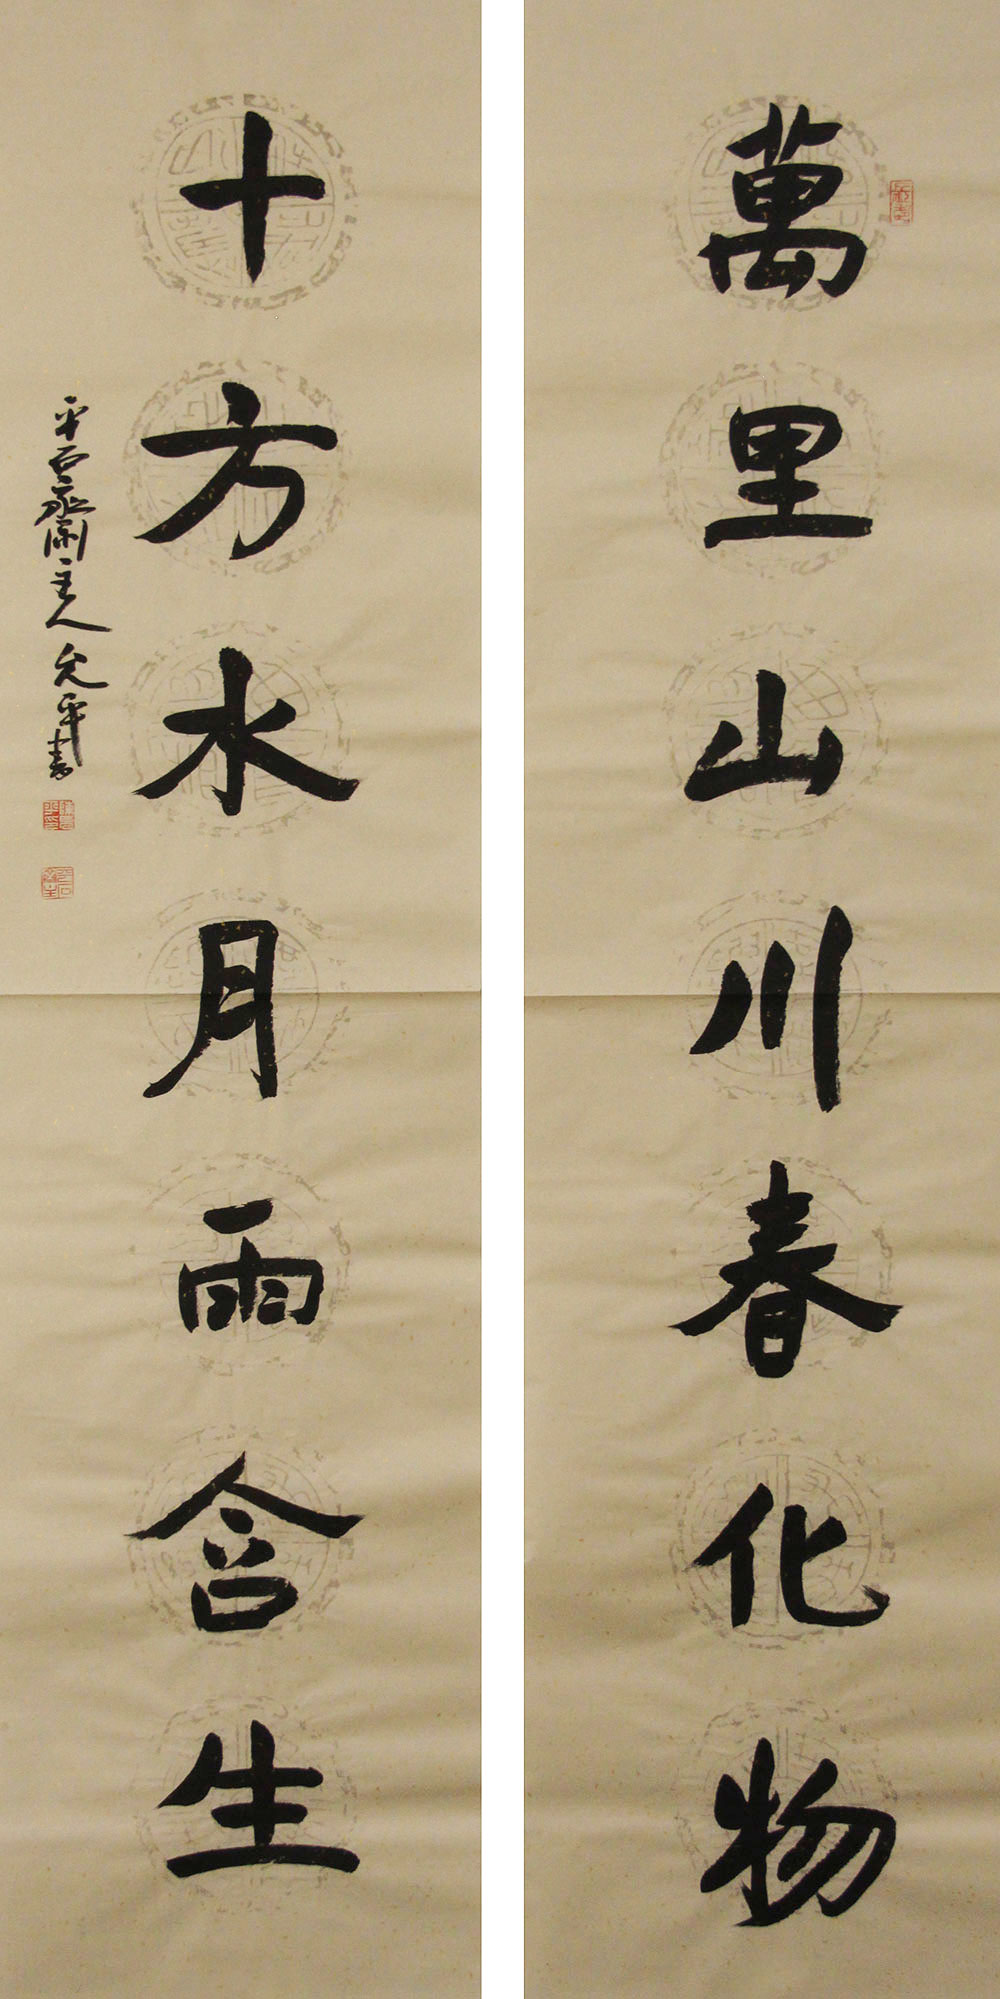 萬里山川春化物
十方水月雨含生
主人允平書